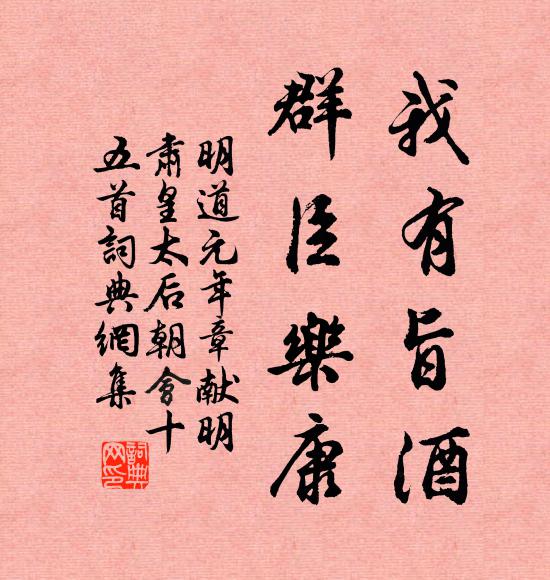 我有旨酒
群臣樂康
明道元年章献明
肅皇太后朝會十
五首詞典網集
詞典
网印